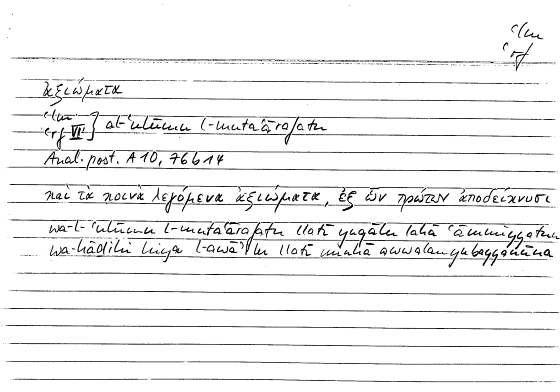 ʿlm
ʿrf
ἀξιώματα
ʿlm
ʿrf VI } al-ʿulūmu l-mutaʿārafatu
Anal. post. A 10, 76b14
καὶ τὰ κοινὰ λεγόμενα ἀξιώματα, ἐξ ὧν πρώτων ἀποδείκνυσι
wa-l-ʿulūmu l-mutaʿārafatu llatī yuqālu lahā ʿāmmiyyatun
wa-hāḏihi hiya l-awāʾilu llatī minhā awwalan yubayyinūna